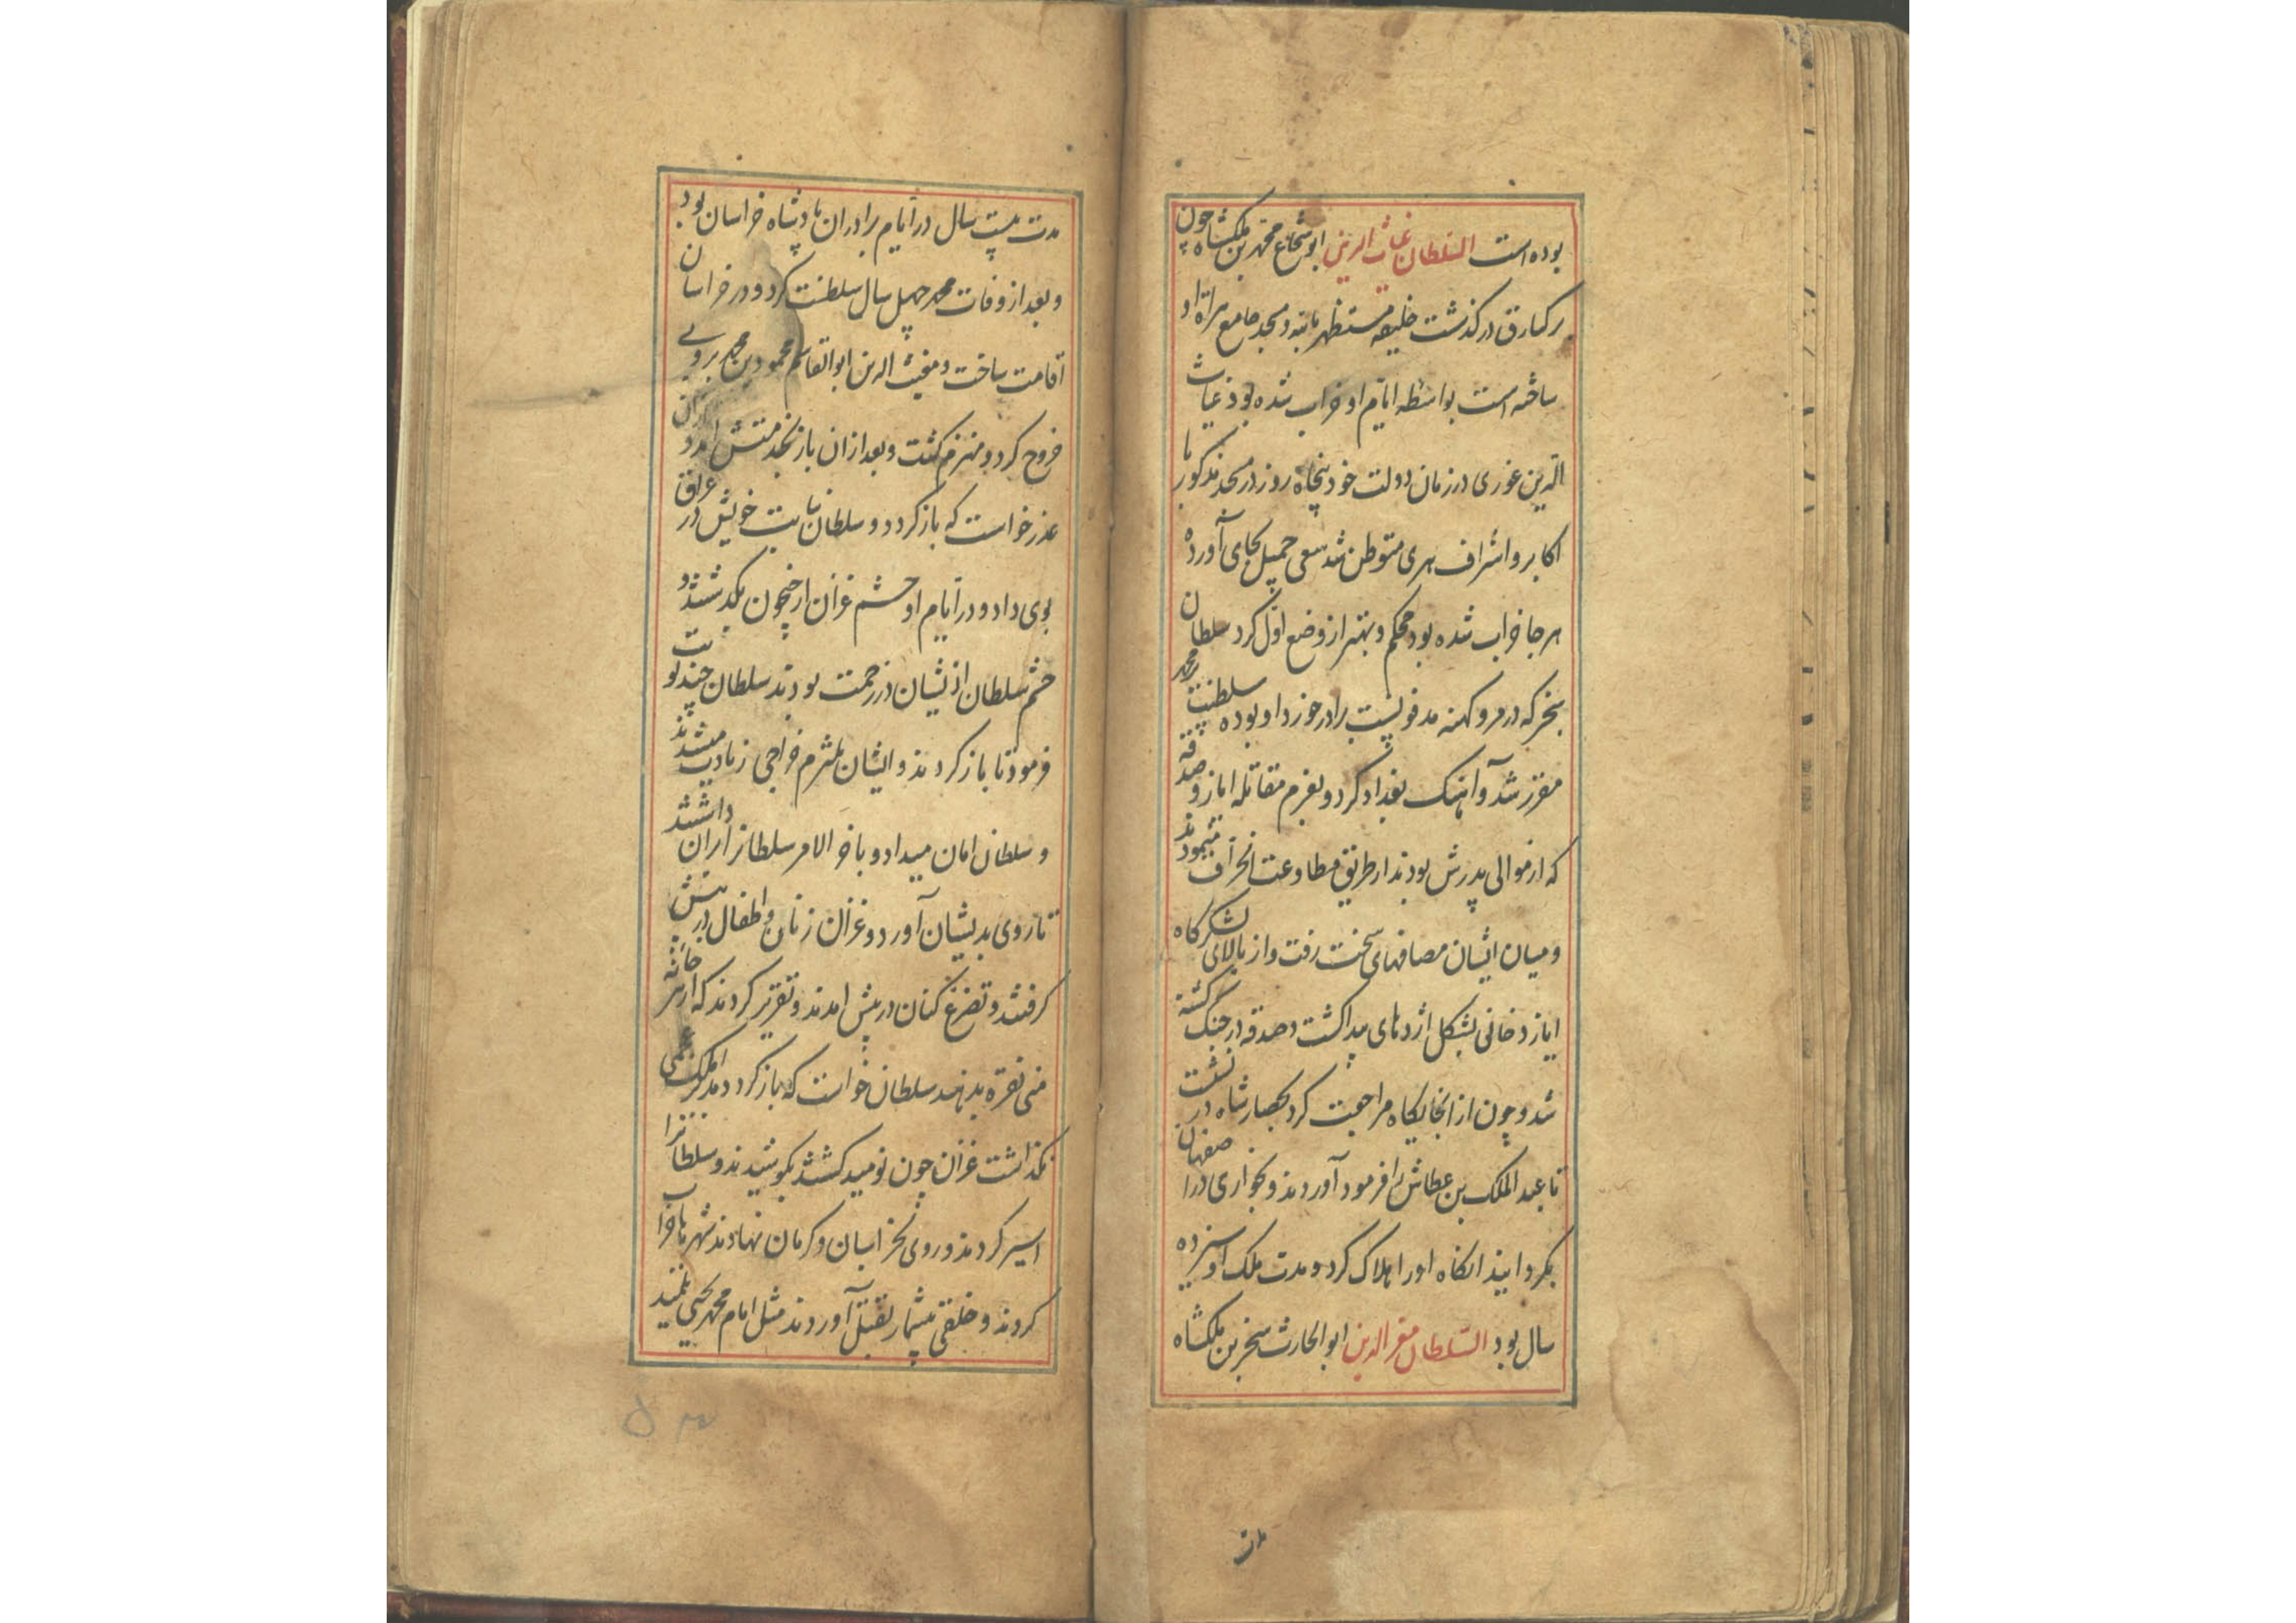 بوده است السلطان غیاث الدین ابو شجاع محمد بن ملکشاه چون
برکیارق درگذشت خلیفه مستظهر بالله و مسجد جامع هراة او
ساخته است بواسطه ایام او خراب شده بود غیاث
الدین غوری در زمان دولت خود پنجاه روز در مسجد مذکور با
اکابر و اشراف هری متوطن شد سعی جمیل بجای آورده
هر جا خراب شده بود محکم و بهتر از وضع اول کرد سلطان
سنجر که در مرو کهنه مدفونست برادر خورد او بوده سلطنت بر محمد
مقرر شد و آهنک بغداد کرد و بعزم مقاتله ایاز و صدقه
که از موالی پدرش بودند از طریق مطاوعت انحراف مینمودند
و میان ایشان مصافهای سخت رفت و از بالای لشکرگاه
ایاز دخانی بشکل اژدهای پیدا کشت و صدقه در جنک کشته
شد و چون از انجایکاه مراجعت کرد بحصار شاه در نشست
تا عبد الملک بن عطاش را فرمود آوردند و بخواری در اصفهان
بکردانید انکاه او را هلاک کرد و مدت ملک او سیزده
سال بود السلطان معز الدین ابو الحارث سنجر بن ملکشاه
مدت
مدت بیست سال در ایام برادران پادشاه خراسان بود
و بعد از وفات محمد چهل سال سلطنت کرد و در خراسان
اقامت ساخت و مغیث الدین ابو القاسم محمود بن محمد بر وی
خروج کرد و منهزم کشت و بعد از ان باز بخدمتش آمد
عذر خواست که باز کردد و سلطان نیابت خویش در عراق
بوی داد و در ایام او حشم غزان از جیحون بکذشتند و
حشم سلطان از یشان در زحمت بودند سلطان چند نوبت
فرمود تا باز کردند و ایشان ملتزم خراجی زیادت میشدند
و سلطان امان میداد و باخر الامر سلطانرا بران داشتند
تا روی بدیشان آورد و غزان زنان و اطفال در پیش
کرفتند و تضرع کنان در پیش امدند و تقریر کردند که از هر خانه
منی نقره بدهند سلطان خواست که باز کردد
نکذاشت غزان چون نومید کشتند بکوشیدند و سلطانرا
اسیر کردند و روی بخراسان و کرمان نهادند شهرها خراب
کردند و خلقی بیشمار بقتل آوردند مثل امام محمد یحیی تلمیذ